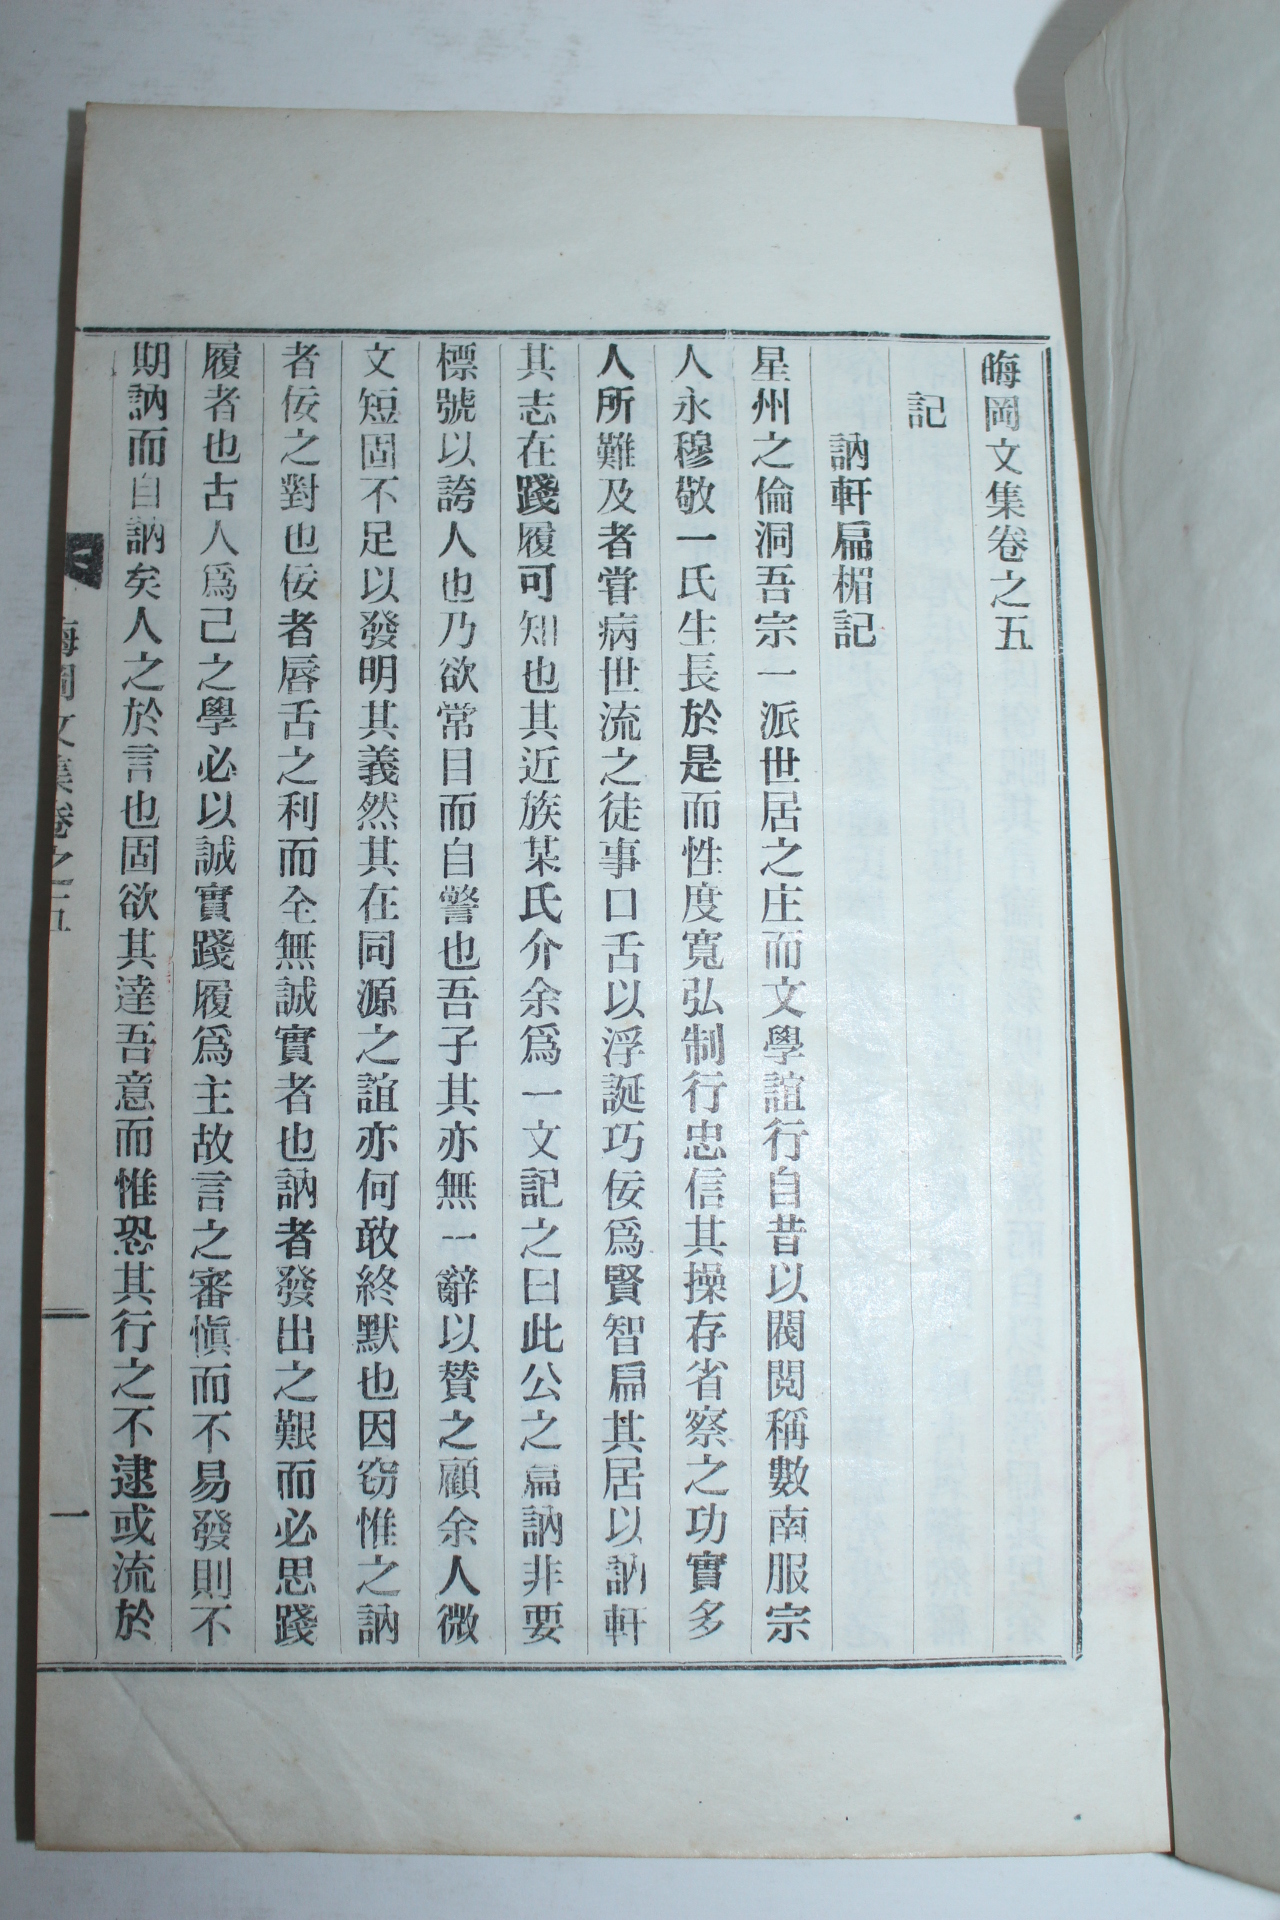 晦岡文集卷之五
記
訥軒扁楣記
星州之倫洞吾宗一派世居之庄而文學誼行自昔以閥閱稱數南服宗
人永穆敬一氏生長於是而性度寬弘制行忠信其操存省察之功實多
人所難及者甞病世流之徒事口舌以浮誕巧佞爲賢智扁其居以訥軒
其志在踐履可知也其近族某氏介余爲一文記之曰此公之扁訥非要
標號以誇人也乃欲常目而自警也吾子其亦無一辭以賛之顧余人微
文短固不足以發明其義然其在同源之誼亦何敢終默也因窃惟之訥
者佞之對也佞者唇舌之利而全無誠實者也訥者發出之艱而必思踐
履者也古人爲己之學必以誠實踐履爲主故言之審愼而不易發則不
期訥而自訥矣人之於言也固欲其達吾意而惟恐其行之不逮或流於
晦岡文集卷之五
一